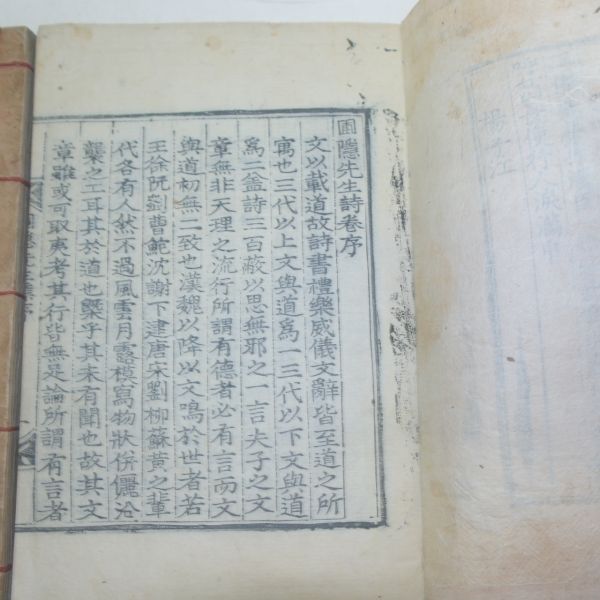 圃隱先生詩卷序
文以載道故詩書禮樂威儀文辭皆至道之所
寓也三代以上文與道爲一三代以下文與道
爲二盖詩三百蔽以思無邪之一言夫子之文
章無非天理之流行所謂有德者必有言而文
與道初無二致也漢魏以降以文鳴於世者若
王徐阮劉曹鮑沈謝下逮唐宋劉柳蘇黃之輩
代各有人然不過風雲月露模寫物狀併儷沿
襲之工耳其於道也槩乎其未有聞也故其文
章雖或可取夷考其行皆無足論所謂有言者
楊子江